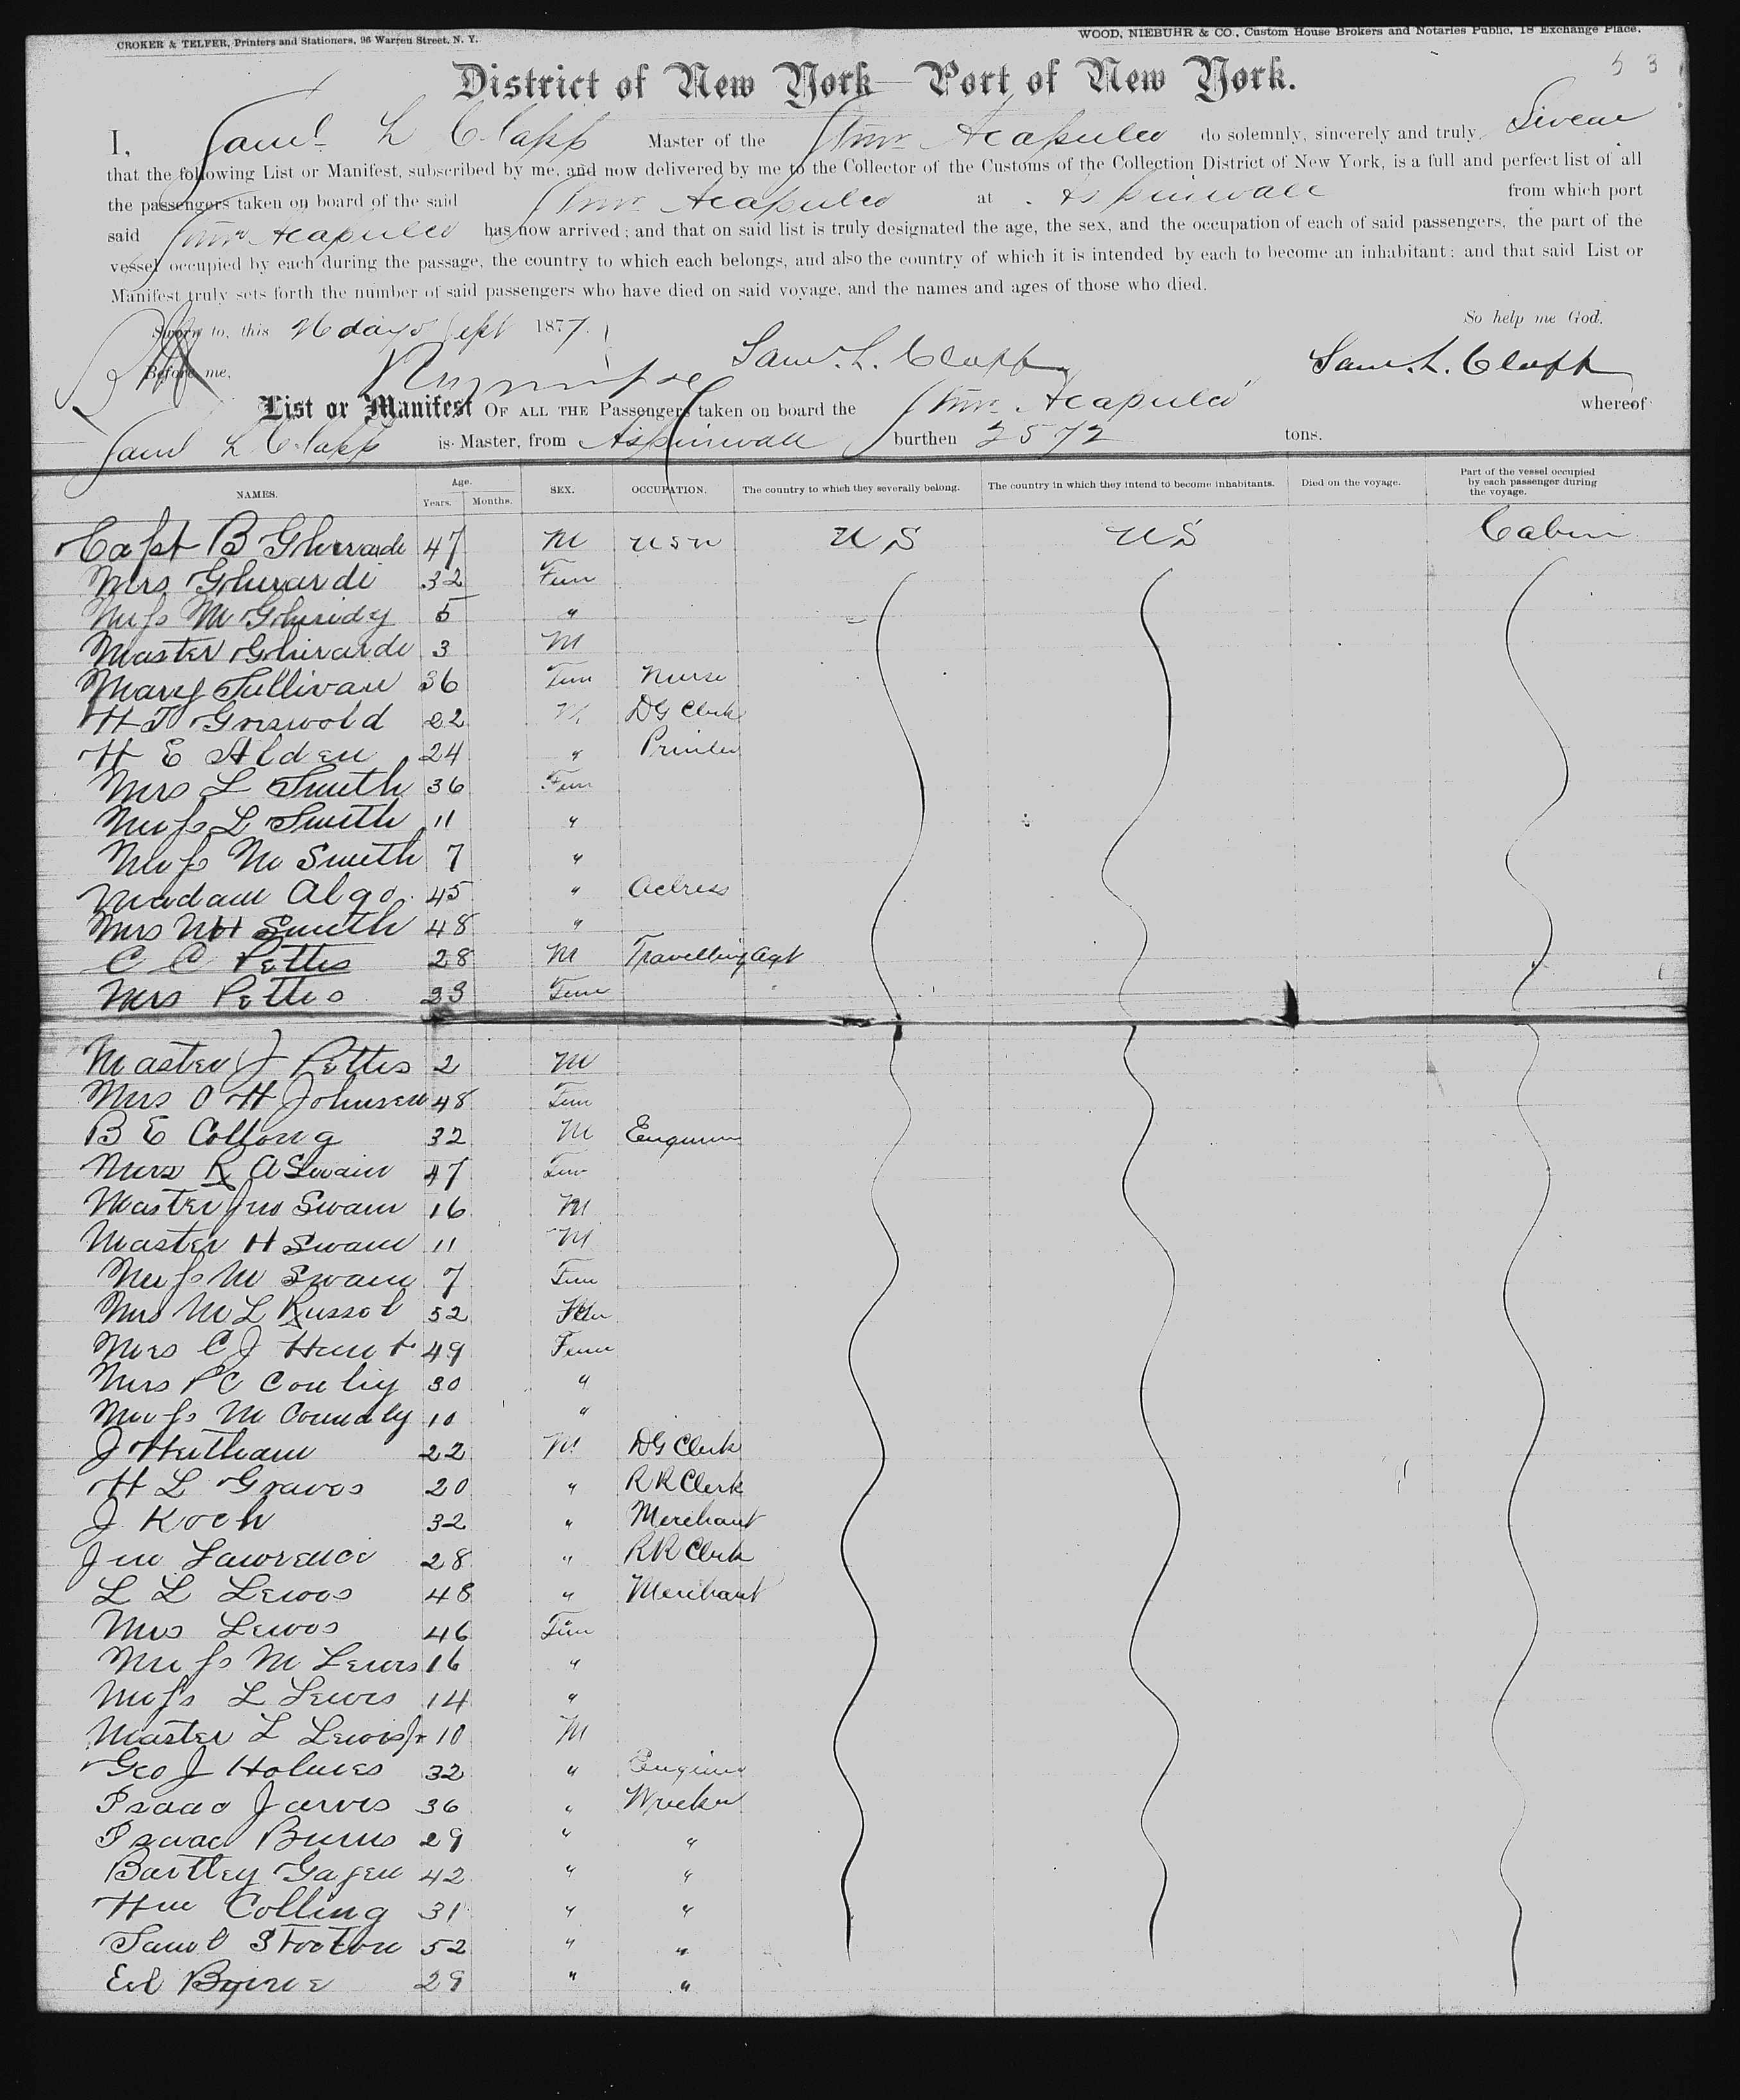 CROKER & TELFER, Printers and Stationers, 96 Warren Street, N. Y. WOOD, NIEBUHR & CO., Custom House Brokers and Notaries Public, 18 Exchange Place.
53
District of New York Port of New York.
I, Saml L Clapp Master of the Stmr Acapulco do solemnly, sincerely and truly, Swear
that the following List or Manifest, subscribed by me, and now delivered by me to the Collector of the Customs of the Collection District of New York, is a full and perfect list of all
the passengers taken on board of the said Stmr Acapulco at Aspinwall from which port
said Stmr Acapulco has now arrived; and that on said list is truly designated the age, the sex, and the occupation of each of said passengers, the part of the
vessel occupied by each during the passage, the country to which each belongs, and also the country of which it is intended by each to become an inhabitant; and that said List or
Manifest truly sets forth the number of said passengers who have died on said voyage, and the names and ages of those who died.
Sworn to, this 26 day Sept 1877. So help me God.
Before me, Saml. L. Clapp Saml. L. Clapp
List or Manifest OF ALL THE Passengers taken on board the Stmr Acapulco whereof
Saml L Clapp is Master, from Aspinwall burthen 2572 tons.
NAMES. Age. Years. Months. SEX. OCCUPATION. The country to which they severally belong. The country in which they intend to become inhabitants. Died on the voyage. Part of the vessel occupied by each passenger during the voyage.
Capt B Gherardi 47 M USN US US Cabin
Mrs Gherardi 32 Fem
Miss M 5 "
Master Gherardi 3 M
Mary Sullivan 36 Fem Nurse
H J Griswold 22 M DG Clerk
H E Alden 24 " Printer
Mrs L Smith 36 Fem
Miss L Smith 11 "
Miss M Smith 7 "
Madam Algo 45 " Actress
Mrs Smith 48 "
C C Pettis 28 M Travelling Agt
Mrs Pettis 23 Fem
Master J Pettis 2 M
Mrs O H Johnsen 48 Fem
B E 32 M Engineer
Mrs R A Swain 47 Fem
Master Jno Swain 16 M
Master H Swain 11 M
Miss M Swain 7 Fem
Mrs M L Russel 52 Fem
Mrs C J Hunt 49 Fem
Mrs P C 30 "
Miss M 10 "
J 22 M DG Clerk
H L Graves 20 " RR Clerk
J Koch 32 " Merchant
Jno Lawrence 28 " RR Clerk
L L Lewis 48 " Merchant
Mrs Lewis 46 Fem
Miss M Lewis 16 "
Miss L Lewis 14 "
Master L Lewis Jr 10 M
Geo J Holmes 32 " Engineer
Isaac Jarvis 36 " Wrecker
Isaac Burns 29 " "
Bartley Gagen 42 " "
Colling 31 " "
Saml Stocton 52 " "
Ed Byrne 29 " "